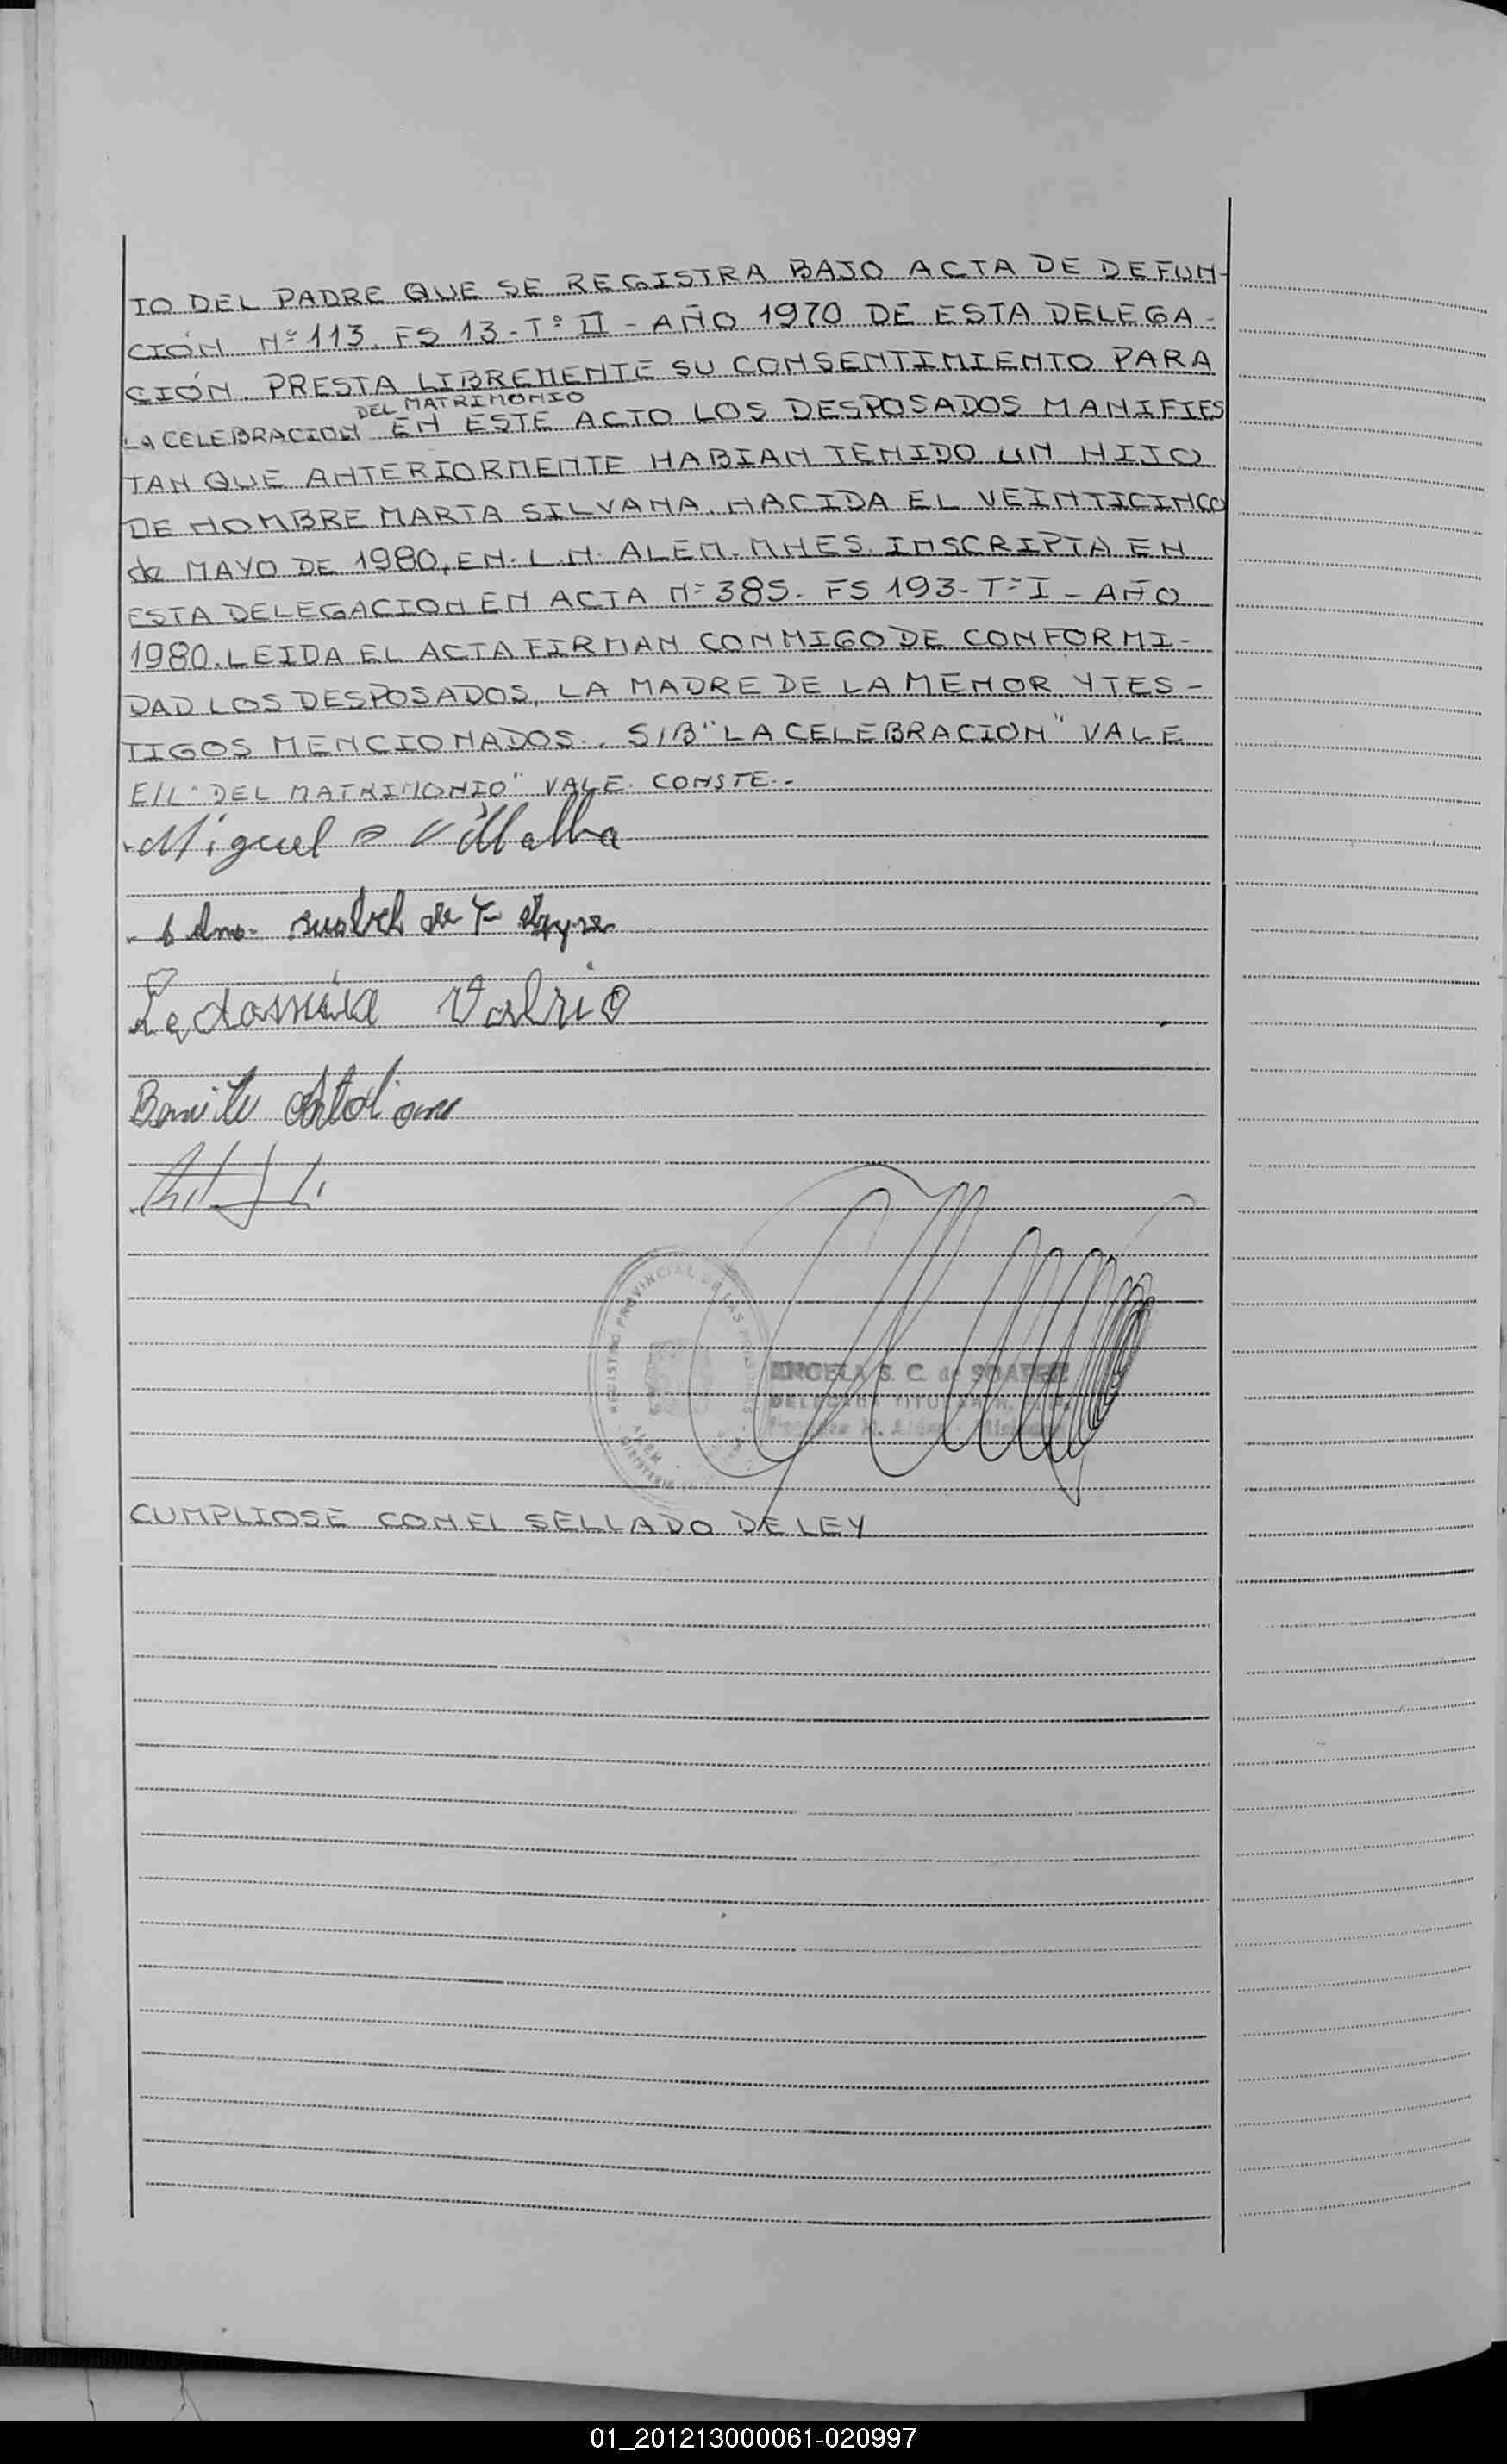 TO DEL PADRE QUE SE REGISTRA BAJO ACTA DE DEFUN-
CIÓN Nº 113. FS 13-Tº II - AÑO 1970 DE ESTA DELEGA-
CIÓN. PRESTA LIBREMENTE SU CONSENTIMIENTO PARA
DEL MATRIMONIO
LA CELEBRACION EN ESTE ACTO LOS DESPOSADOS MANIFIES
TAN QUE ANTERIORMENTE HABIAN TENIDO UN HIJO
DE NOMBRE MARTA SILVANA. NACIDA EL VEINTICINCO
de MAYO DE 1980, EN. L.N. ALEM. MNES. INSCRIPTA EN
ESTA DELEGACION EN ACTA Nº 385. FS 193-Tº I - AÑO
1980. LEIDA EL ACTA FIRMAN CONMIGO DE CONFORMI-
DAD LOS DESPOSADOS, LA MADRE DE LA MENOR, Y TES-
TIGOS MENCIONADOS. S/B "LA CELEBRACION" VALE
E/L "DEL MATRIMONIO" VALE. CONSTE.-
Miguel Villalba
de
REGISTRO PROVINCIAL DE LAS
ANGELA S. C. de SOAREZ
DELEGADA TITULAR
CUMPLIOSE CON EL SELLADO DE LEY
01_201213000061-020997